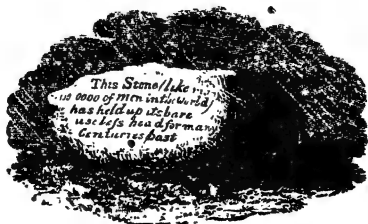 This Stone/like
0000 of men in the World/
has held up its bare
useless head for many
Centuries past